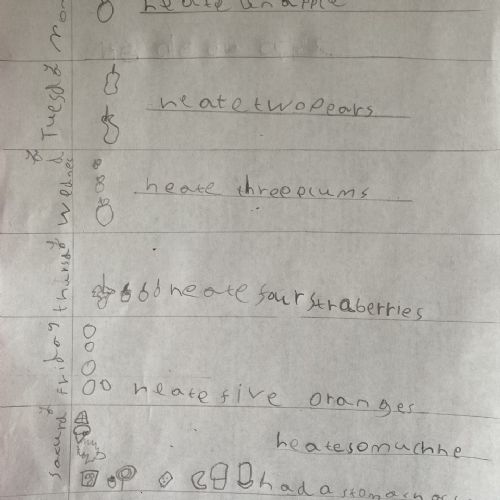 heate an apple
Tuesday
heatetwopears
heate threeplums
thursday
heate fourstraberries
friday
heatefive oranges
heatesomuchhe
hadastomach